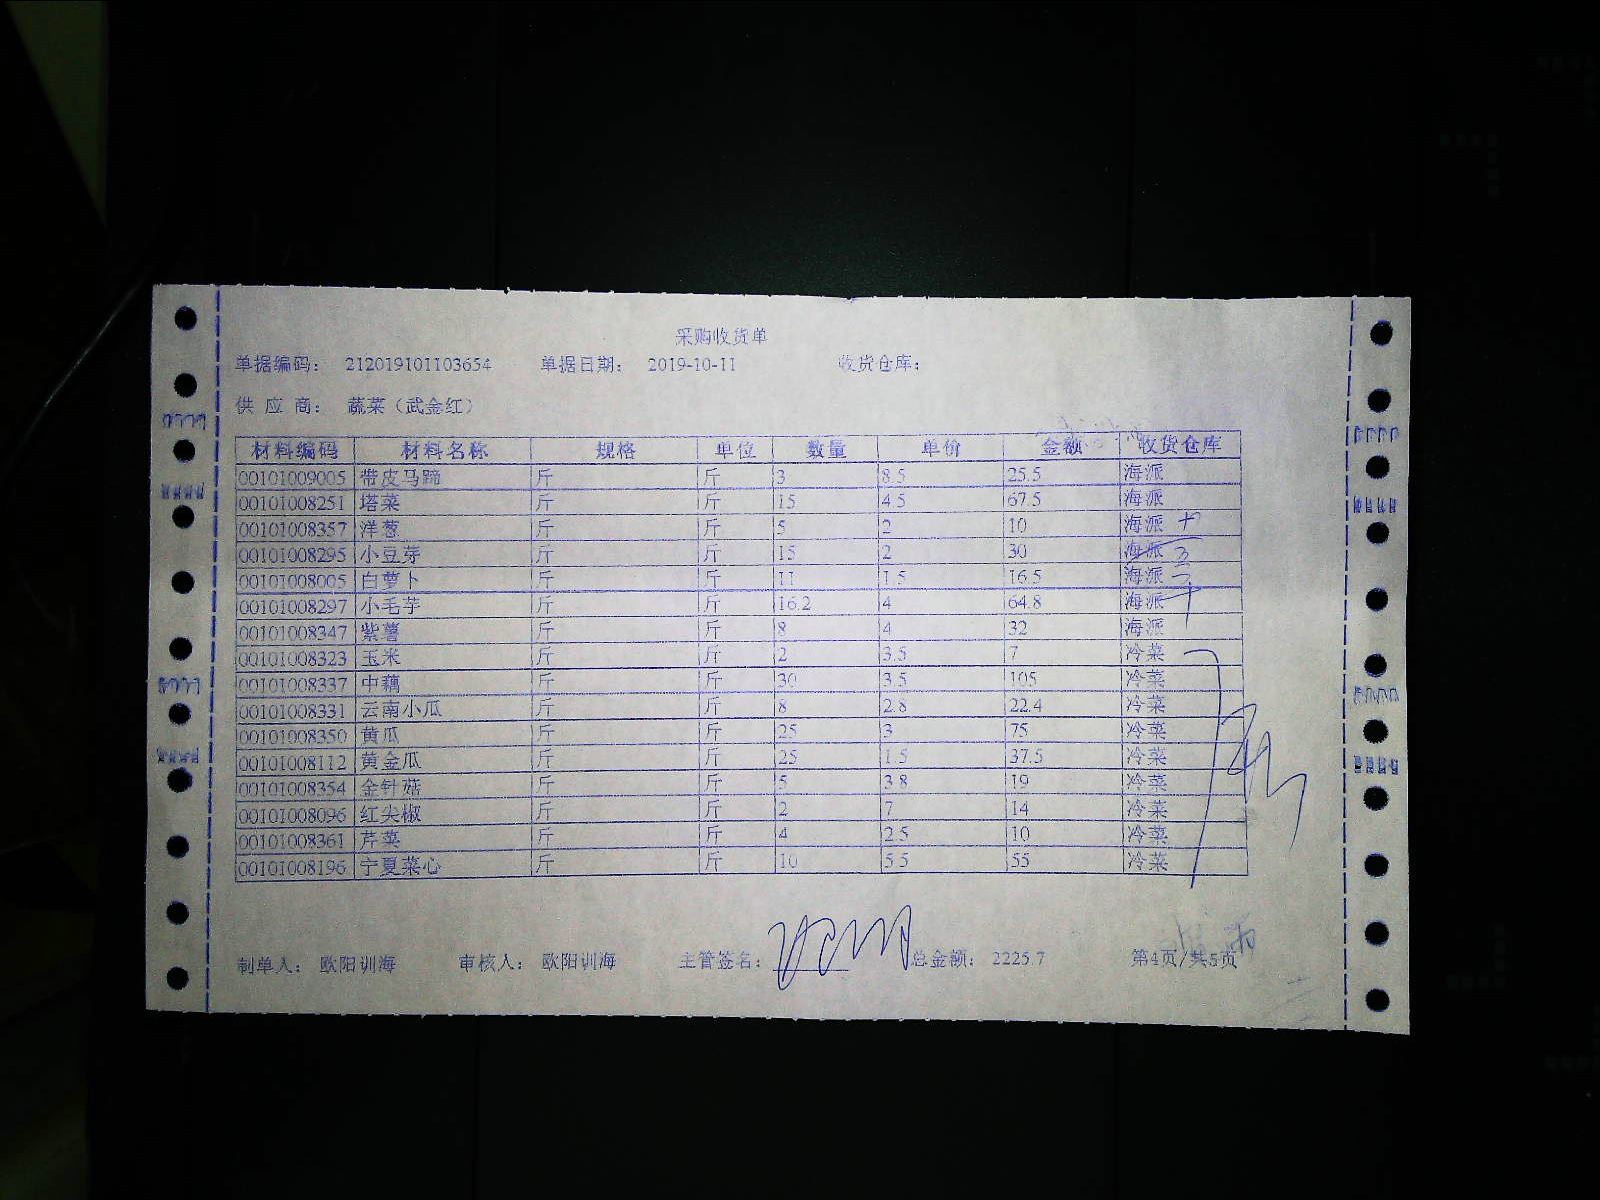 采购收货单
单据编码： 212019101103654 单据日期： 2019-10-11 收货仓库：
供 应 商： 蔬菜（武金红）
材料编码 材料名称 规格 单位 数量 单价 金额 收货仓库
00101009005 带皮马蹄 斤 斤 3 8.5 25.5 海派
00101008251 塔菜 斤 斤 15 4.5 67.5 海派
00101008357 洋葱 斤 斤 5 2 10 海派
00101008295 小豆芽 斤 斤 15 2 30 海派
00101008005 白萝卜 斤 斤 11 1.5 16.5 海派
00101008297 小毛芋 斤 斤 16.2 4 64.8 海派
00101008347 紫薯 斤 斤 8 4 32 海派
00101008323 玉米 斤 斤 2 3.5 7 冷菜
00101008337 中藕 斤 斤 30 3.5 105 冷菜
00101008331 云南小瓜 斤 斤 8 2.8 22.4 冷菜
00101008350 黄瓜 斤 斤 25 3 75 冷菜
00101008112 黄金瓜 斤 斤 25 1.5 37.5 冷菜
00101008354 金针菇 斤 斤 5 3.8 19 冷菜
00101008096 红尖椒 斤 斤 2 7 14 冷菜
00101008361 芹菜 斤 斤 4 2.5 10 冷菜
00101008196 宁夏菜心 斤 斤 10 5.5 55 冷菜
制单人： 欧阳训海 审核人： 欧阳训海 主管签名： 总金额： 2225.7 第4页/共5页